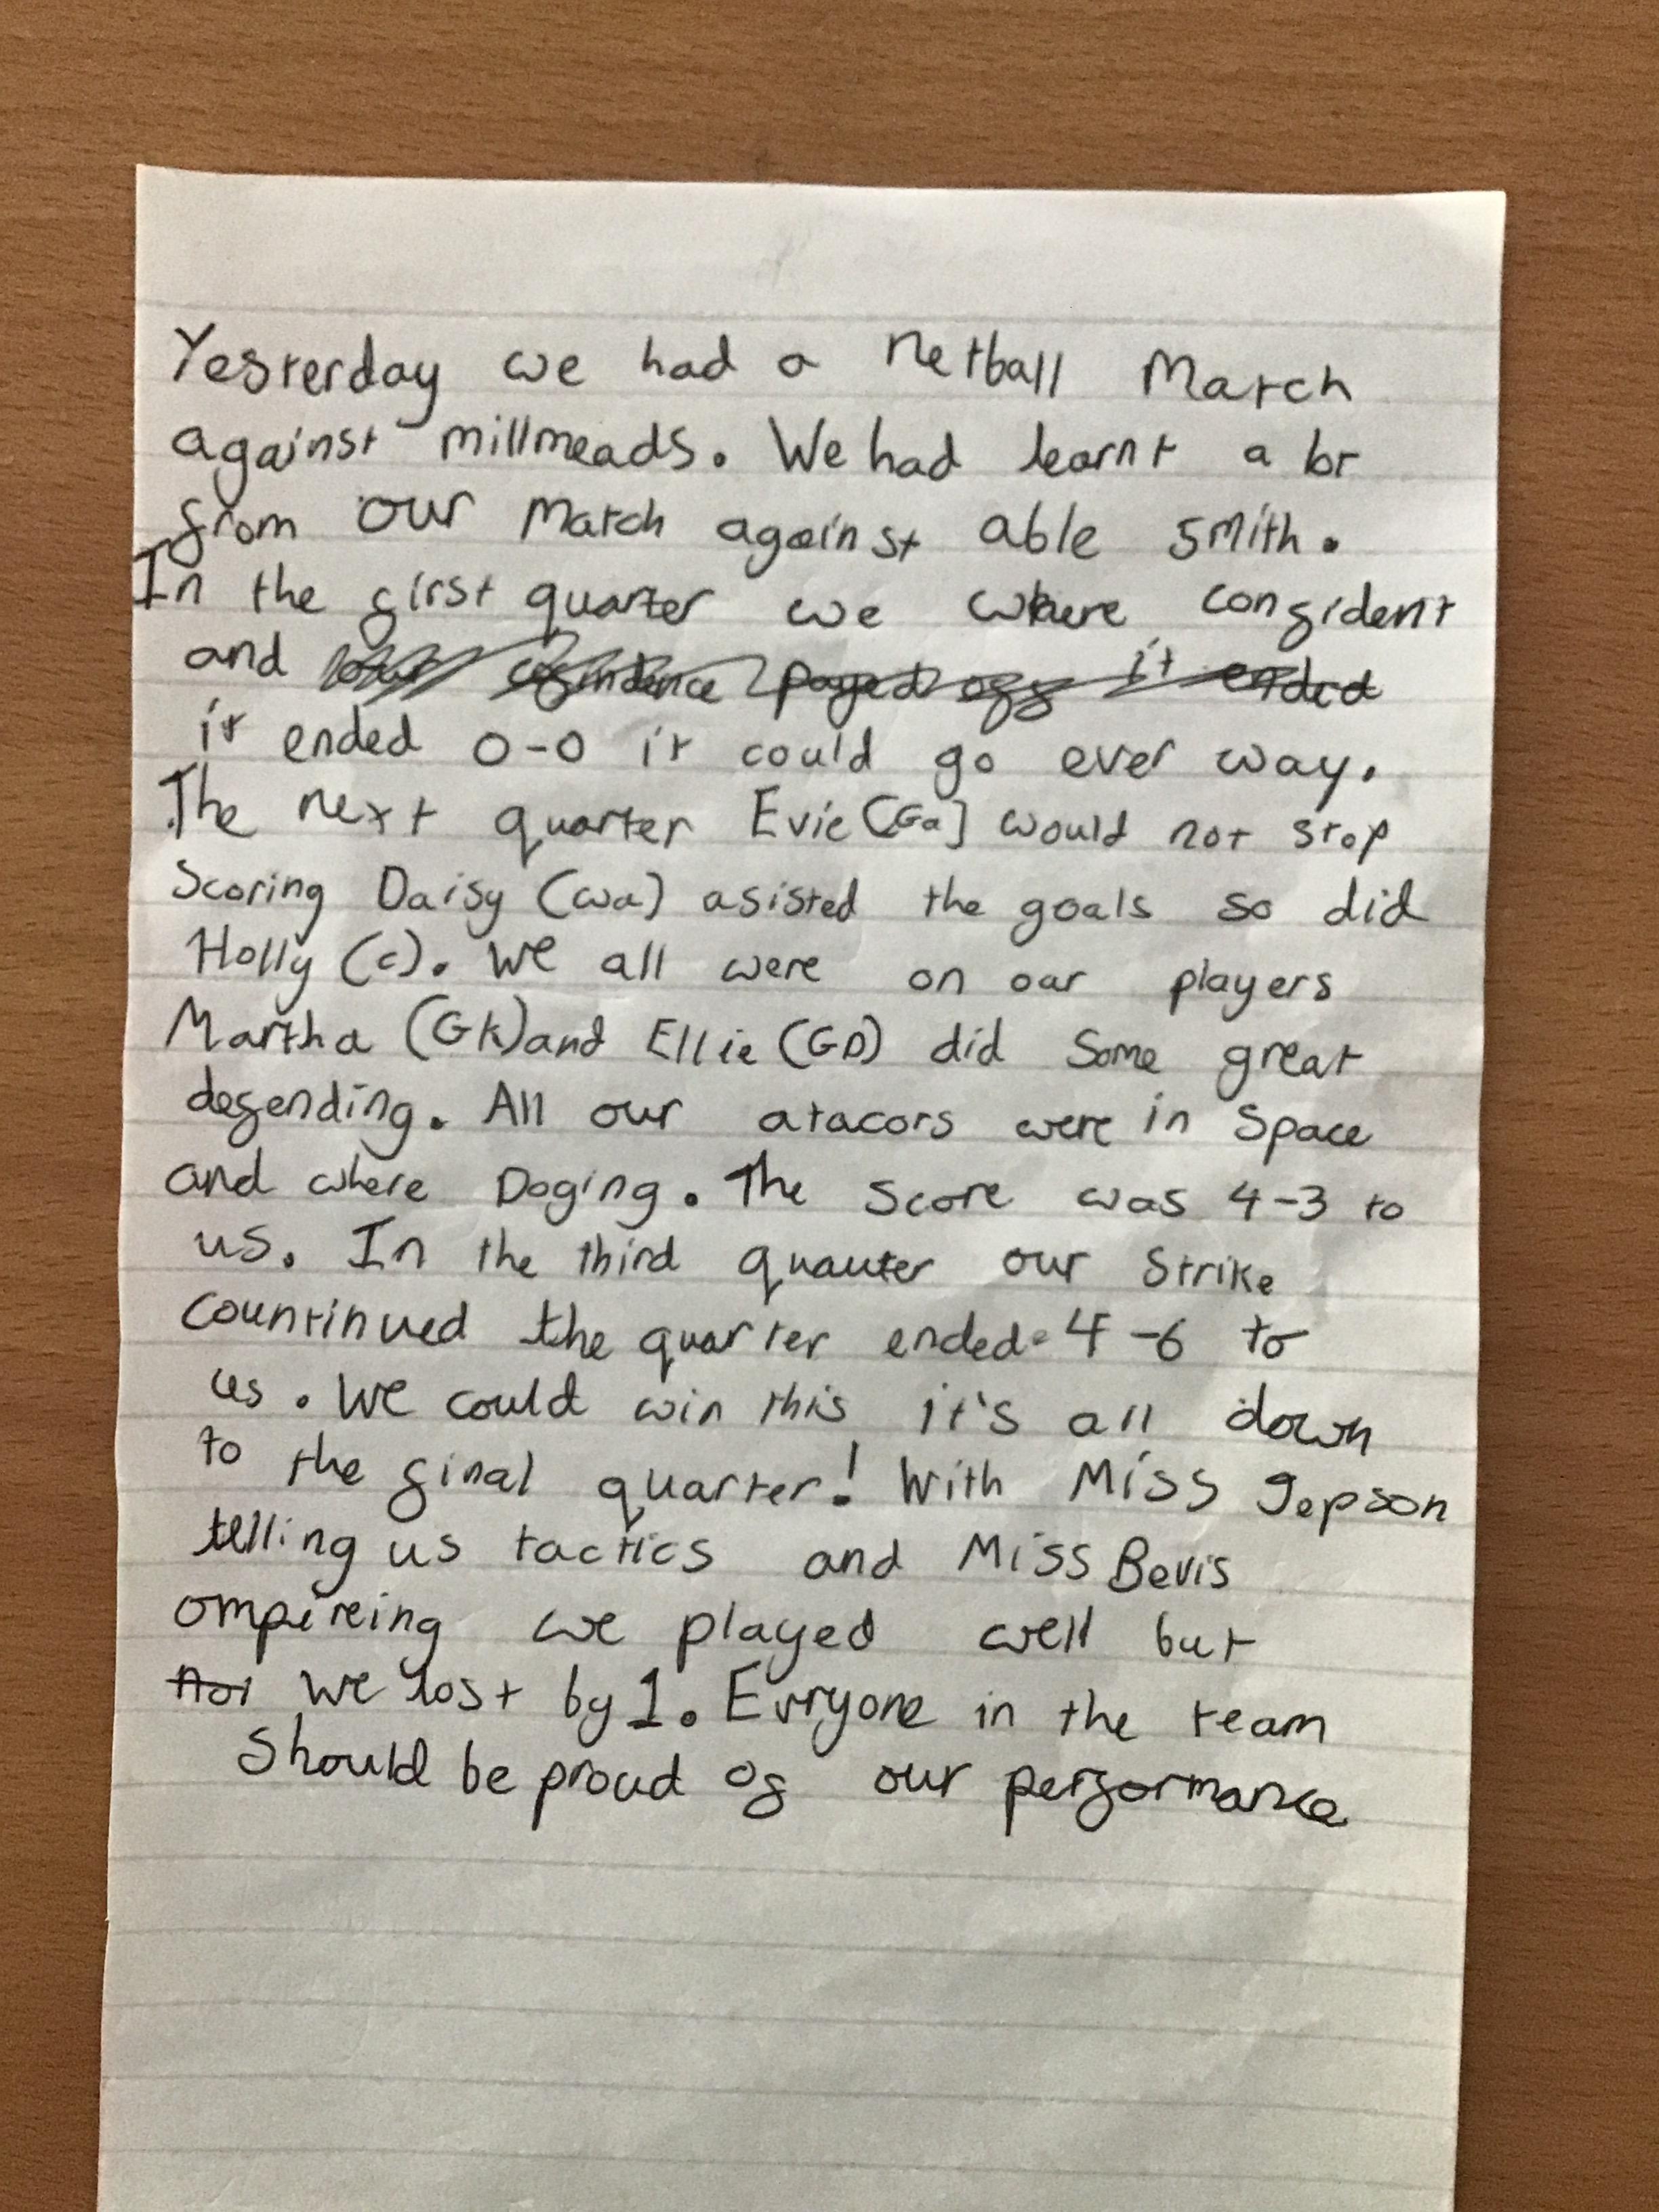 Yesterday we had a netball Match
against millmeads. We had learnt a lot
from our Match against able smith.
In the first quarter we where confident
and confidence payed off it ended
it ended 0-0 it could go ever way.
The next quarter Evie (Ga) would not stop
Scoring Daisy (wa) asisted the goals so did
Holly (c). We all were on our players
Martha (GK) and Ellie (GD) did some great
defending. All our atacors were in space
and where Doging. The score was 4-3 to
us. In the third quauter our strike
countinued the quarter ended 4-6 to
us. We could win this it's all down
to the final quarter! With Miss Jepson
telling us tactics and Miss Bevis
ompireing we played well but
we lost by 1. Evryone in the team
should be proud of our performance